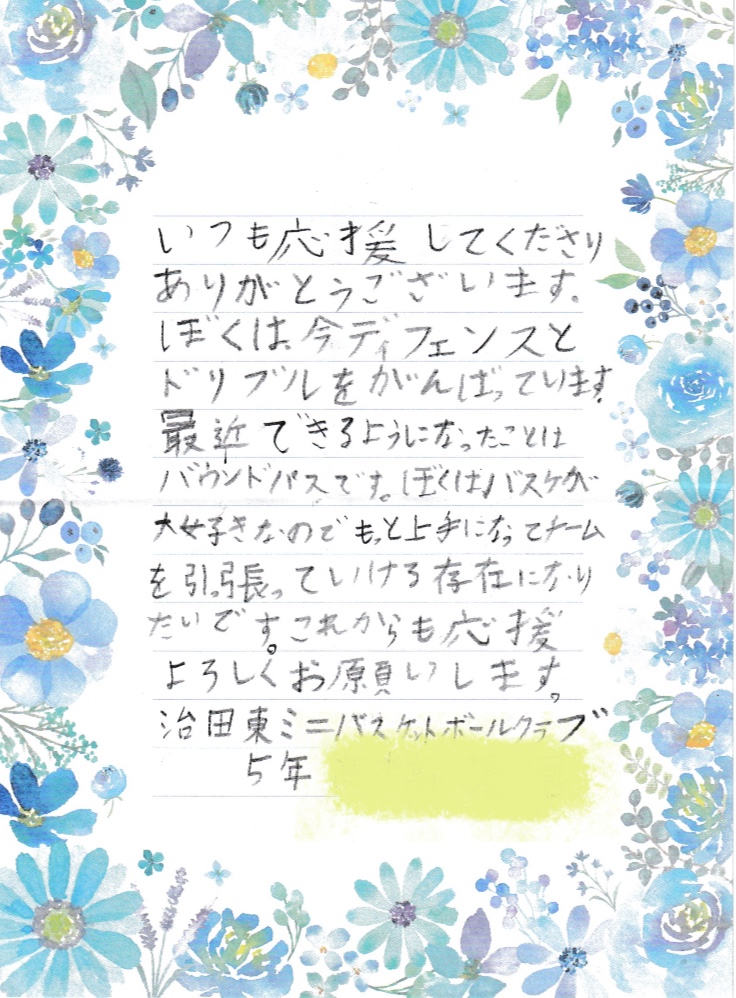 いつも応援してくださり
ありがとうございます。
ぼくは今ディフェンスと
ドリブルをがんばっています
最近できるようになったことは
バウンドパスです。ぼくはバスケが
大好きなのでもっと上手になってチーム
を引っ張っていける存在になり
たいです。これからも応援
よろしくお願いします。
治田東ミニバスケットボールクラブ
5年